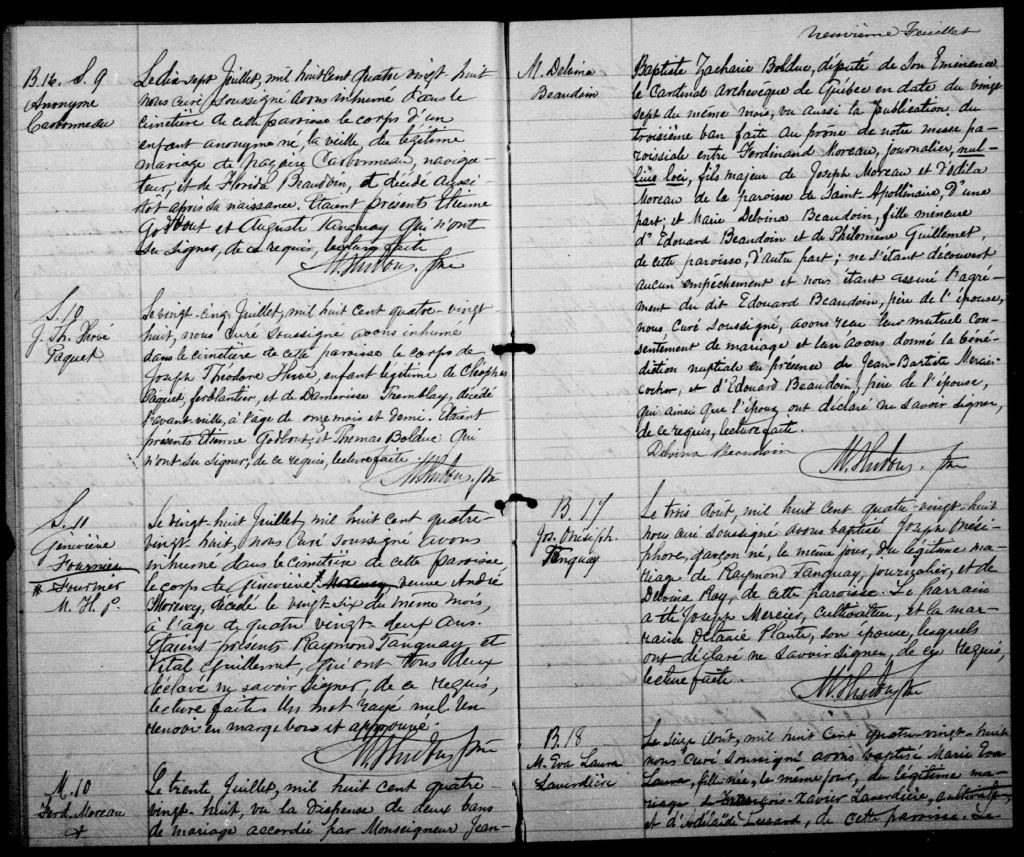 B.16. S. 9
Anonyme
Carbonneau
Le dix-sept Juillet, mil huit cent quatre vingt huit
nous curé soussigné avons inhumé dans le
cimetière de cette paroisse le corps d'un
enfant anonyme né, la veille, du légitime
mariage de Carbonneau, naviga-
teur, et de Florida Beaudoin, et décédé aussi-
tôt après sa naissance. Etaient présents Etienne
Godbout et Auguste Tanguay qui n'ont
su signer, de ce requis, lecture faite
S. 10
J. Th. Hervé
Paquet
Le vingt-cinq Juillet, mil huit cent quatre-vingt
huit, nous curé soussigné avons inhumé
dans le cimetière de cette paroisse le corps de
Joseph Théodore Hervé, enfant légitime de Cléophas
Paquet, ferblantier, et de Damerise Tremblay, décédé
l'avant veille, à l'age de onze mois et demi. Etaient
présents Etienne Godbout, et Thomas Bolduc qui
n'ont su signer, de ce requis, lecture faite.
S. 11
Geneviève
Fournier
* Fournier
M. H. p.
Le vingt-huit Juillet, mil huit cent quatre-
vingt-huit, nous curé soussigné avons
inhumé dans le cimetière de cette paroisse
le corps de Geneviève * veuve André
Morency, décédé le vingt-six du même mois,
à l'age de quatre vingt-deux ans.
Etaient présents Raymond Tanguay et
Vital Guillemet, qui ont tous deux
déclaré ne savoir signer, de ce requis,
lecture faite. Un mot rayé nul Un
renvoi en marge bon et approuvé.
M. 10
Ferd. Moreau
+
Le trente Juillet, mil huit cent quatre-
vingt-huit, vu la dispense de deux bans
de mariage accordée par Monseigneur Jean-
Neuvième Feuillet
M. Delvina
Beaudoin
Baptiste Zacharie Bolduc, député de Son Eminence
le Cardinal Archevêque de Québec en date du vingt
sept du même mois, vu aussi la publication du
troisième ban faite au prône de notre messe pa-
roissiale entre Ferdinand Moreau, journalier, nul-
lius loci, fils majeur de Joseph Moreau et d'Odila
Moreau de la paroisse de Saint-Apollinaire, d'une
part; et Marie Delvina Beaudoin, fille mineure
d'Edouard Beaudoin et de Philomène Guillemet,
de cette paroisse, d'autre part; ne s'étant découvert
aucun empêchement et nous étant assuré l'agré-
ment du dit Edouard Beaudoin, père de l'épouse,
nous Curé soussigné, avons reçu leur mutuel con-
sentement de mariage et leur avons donné la béné-
diction nuptiale en présence de Jean-Baptiste
et d'Edouard Beaudoin, père de l'épouse,
qui ainsi que l'époux ont déclaré ne savoir signer,
de ce requis, lecture faite.
Delvina Beaudoin
B. 17
Jos. Onésiph.
Tanguay
Le trois août, mil huit cent quatre-vingt-huit
nous curé soussigné avons baptisé Joseph Onési-
phore, garçon né, le même jour, du légitime ma-
riage de Raymond Tanguay, journalier, et de
Delvina Roy, de cette paroisse. Le parrain
a été Joseph Mercier, cultivateur, et la mar-
raine Plante, son épouse, lesquels
ont déclaré ne savoir signer, de ce requis,
lecture faite.
B. 18
M. Eva Laura
Laverdière
Le seize août, mil huit cent quatre-vingt huit
nous curé soussigné avons baptisé Marie Eva
Laura, fille née, le même jour, du légitime ma-
riage de François-Xavier Laverdière,
et d'Adélaïde Lessard, de cette paroisse. Le